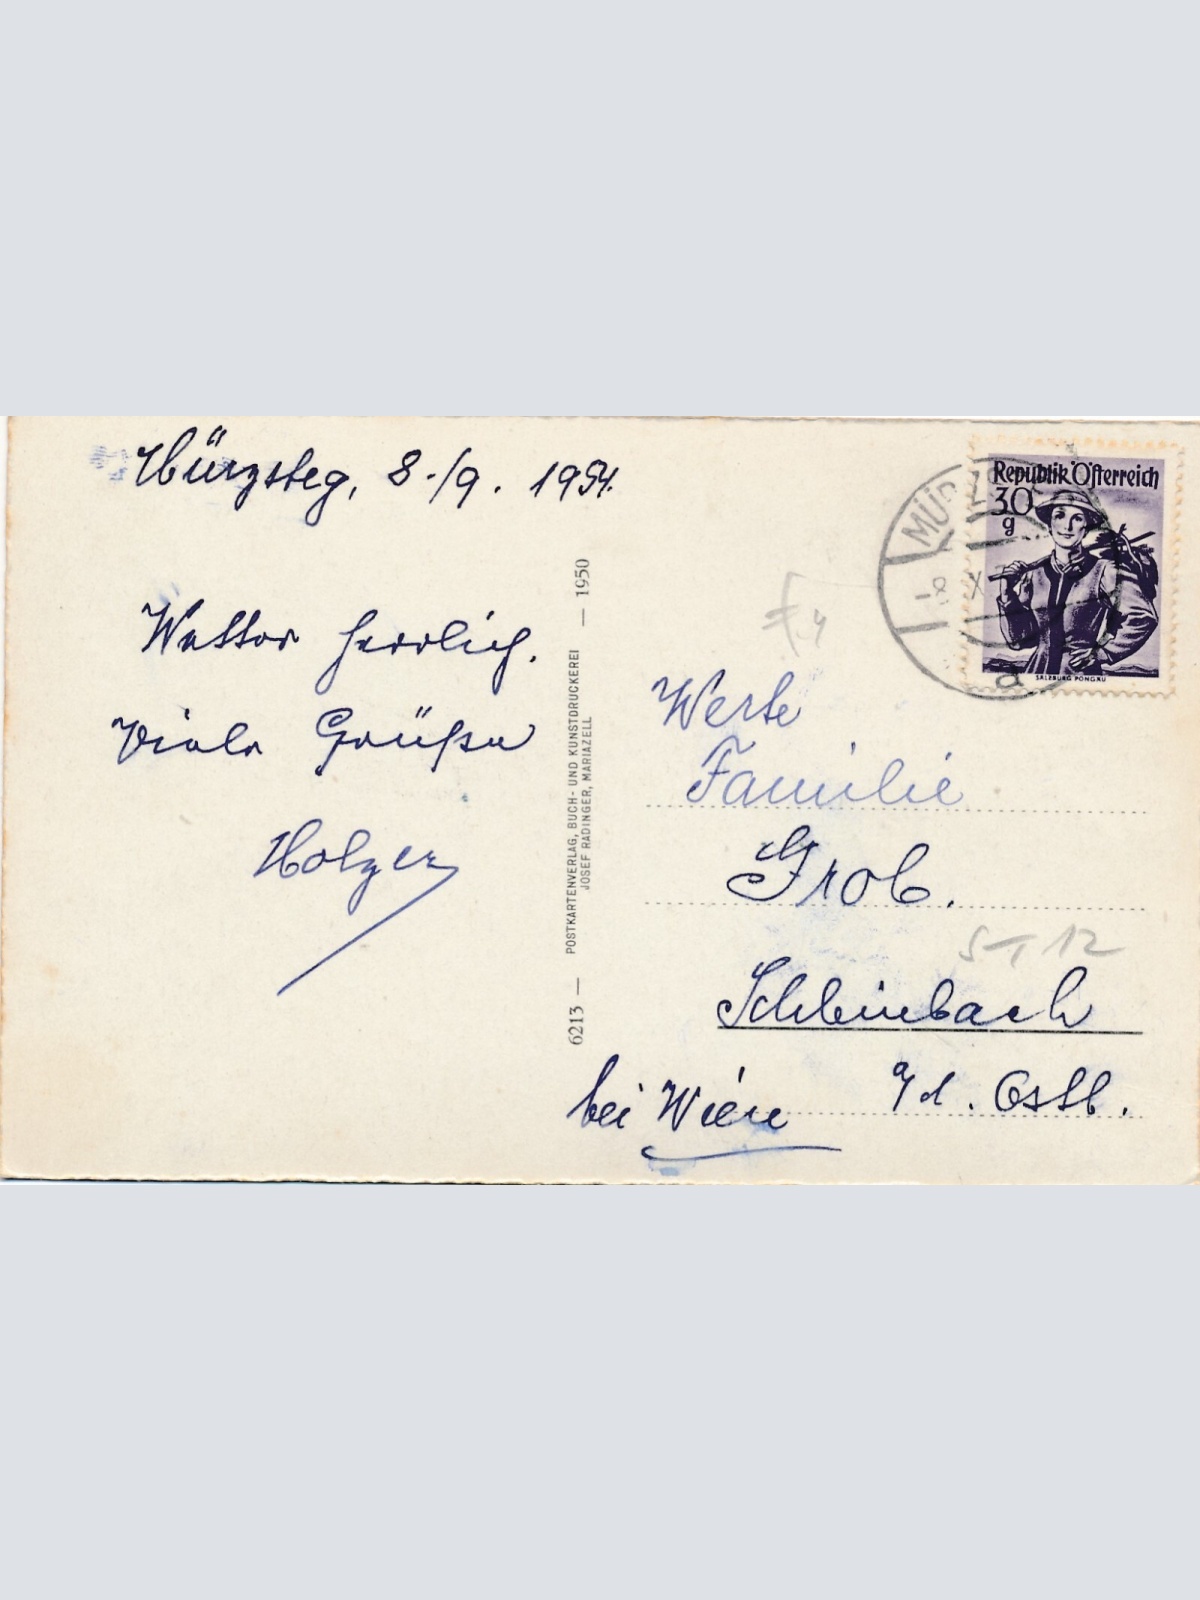 Mürzsteg, 8./9. 1954.
Wetter herrlich.
Viele Grüße
Holzer
6213 — POSTKARTENVERLAG, BUCH- UND KUNSTDRUCKEREI — 1950
JOSEF RADINGER, MARIAZELL
Republik Österreich
30
g
SALZBURG PONGAU
MÜRZ
-8. X
a
Werte
Familie
Grob.
ST 12
Schleinbach
a/d. Ostb.
bei Wien